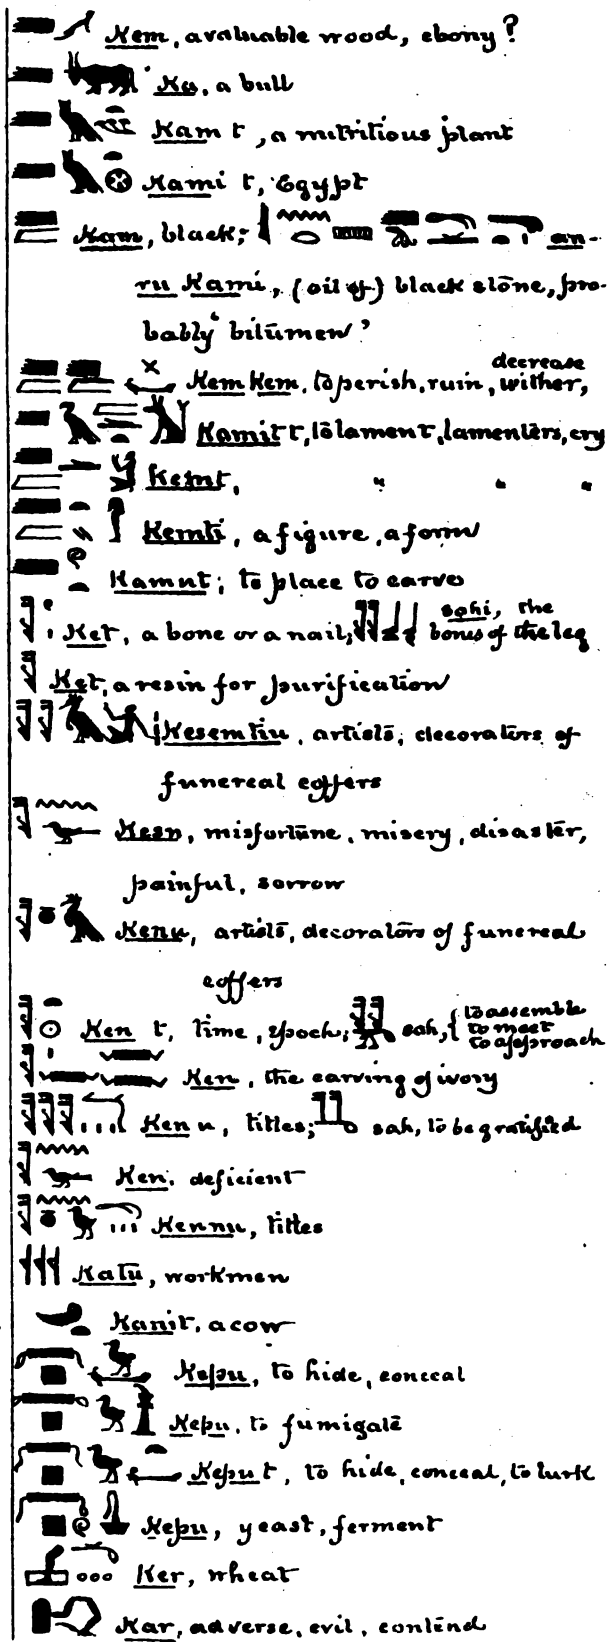 Kem, a valuable wood, ebony?
Ka, a bull
Kam t, a nutritious plant
Kami t, Egypt
Kam, black; an-
ru Kami, (oil of) black stone, pro-
bably "bitumen"
Kem Kem, to perish, ruin, wither, decrease
Kamit t, to lament, lamenters, cry
Kemt, " " "
Kemti, a figure, a form
Kamut; to place to carve
Ket, a bone or a nail; sahi, the bones of the leg
Ket, a resin for purification
Kesemtiu, artists, decorators of
funereal coffers
Kesn, misfortune, misery, disaster,
painful, sorrow
Kenu, artists, decorators of funereal
coffers
Ken t, time, epoch; sah, { to assemble
to meet
to approach
Ken, the carving of ivory
Ken u, titles; sah, to be gratified
Ken, deficient
Kennu, titles
Katu, workmen
Kanit, a cow
Kepu, to hide, conceal
Kepu, to fumigate
Kepu t, to hide, conceal, to lurk
Kepu, yeast, ferment
Ker, wheat
Kar, adverse, evil, contend